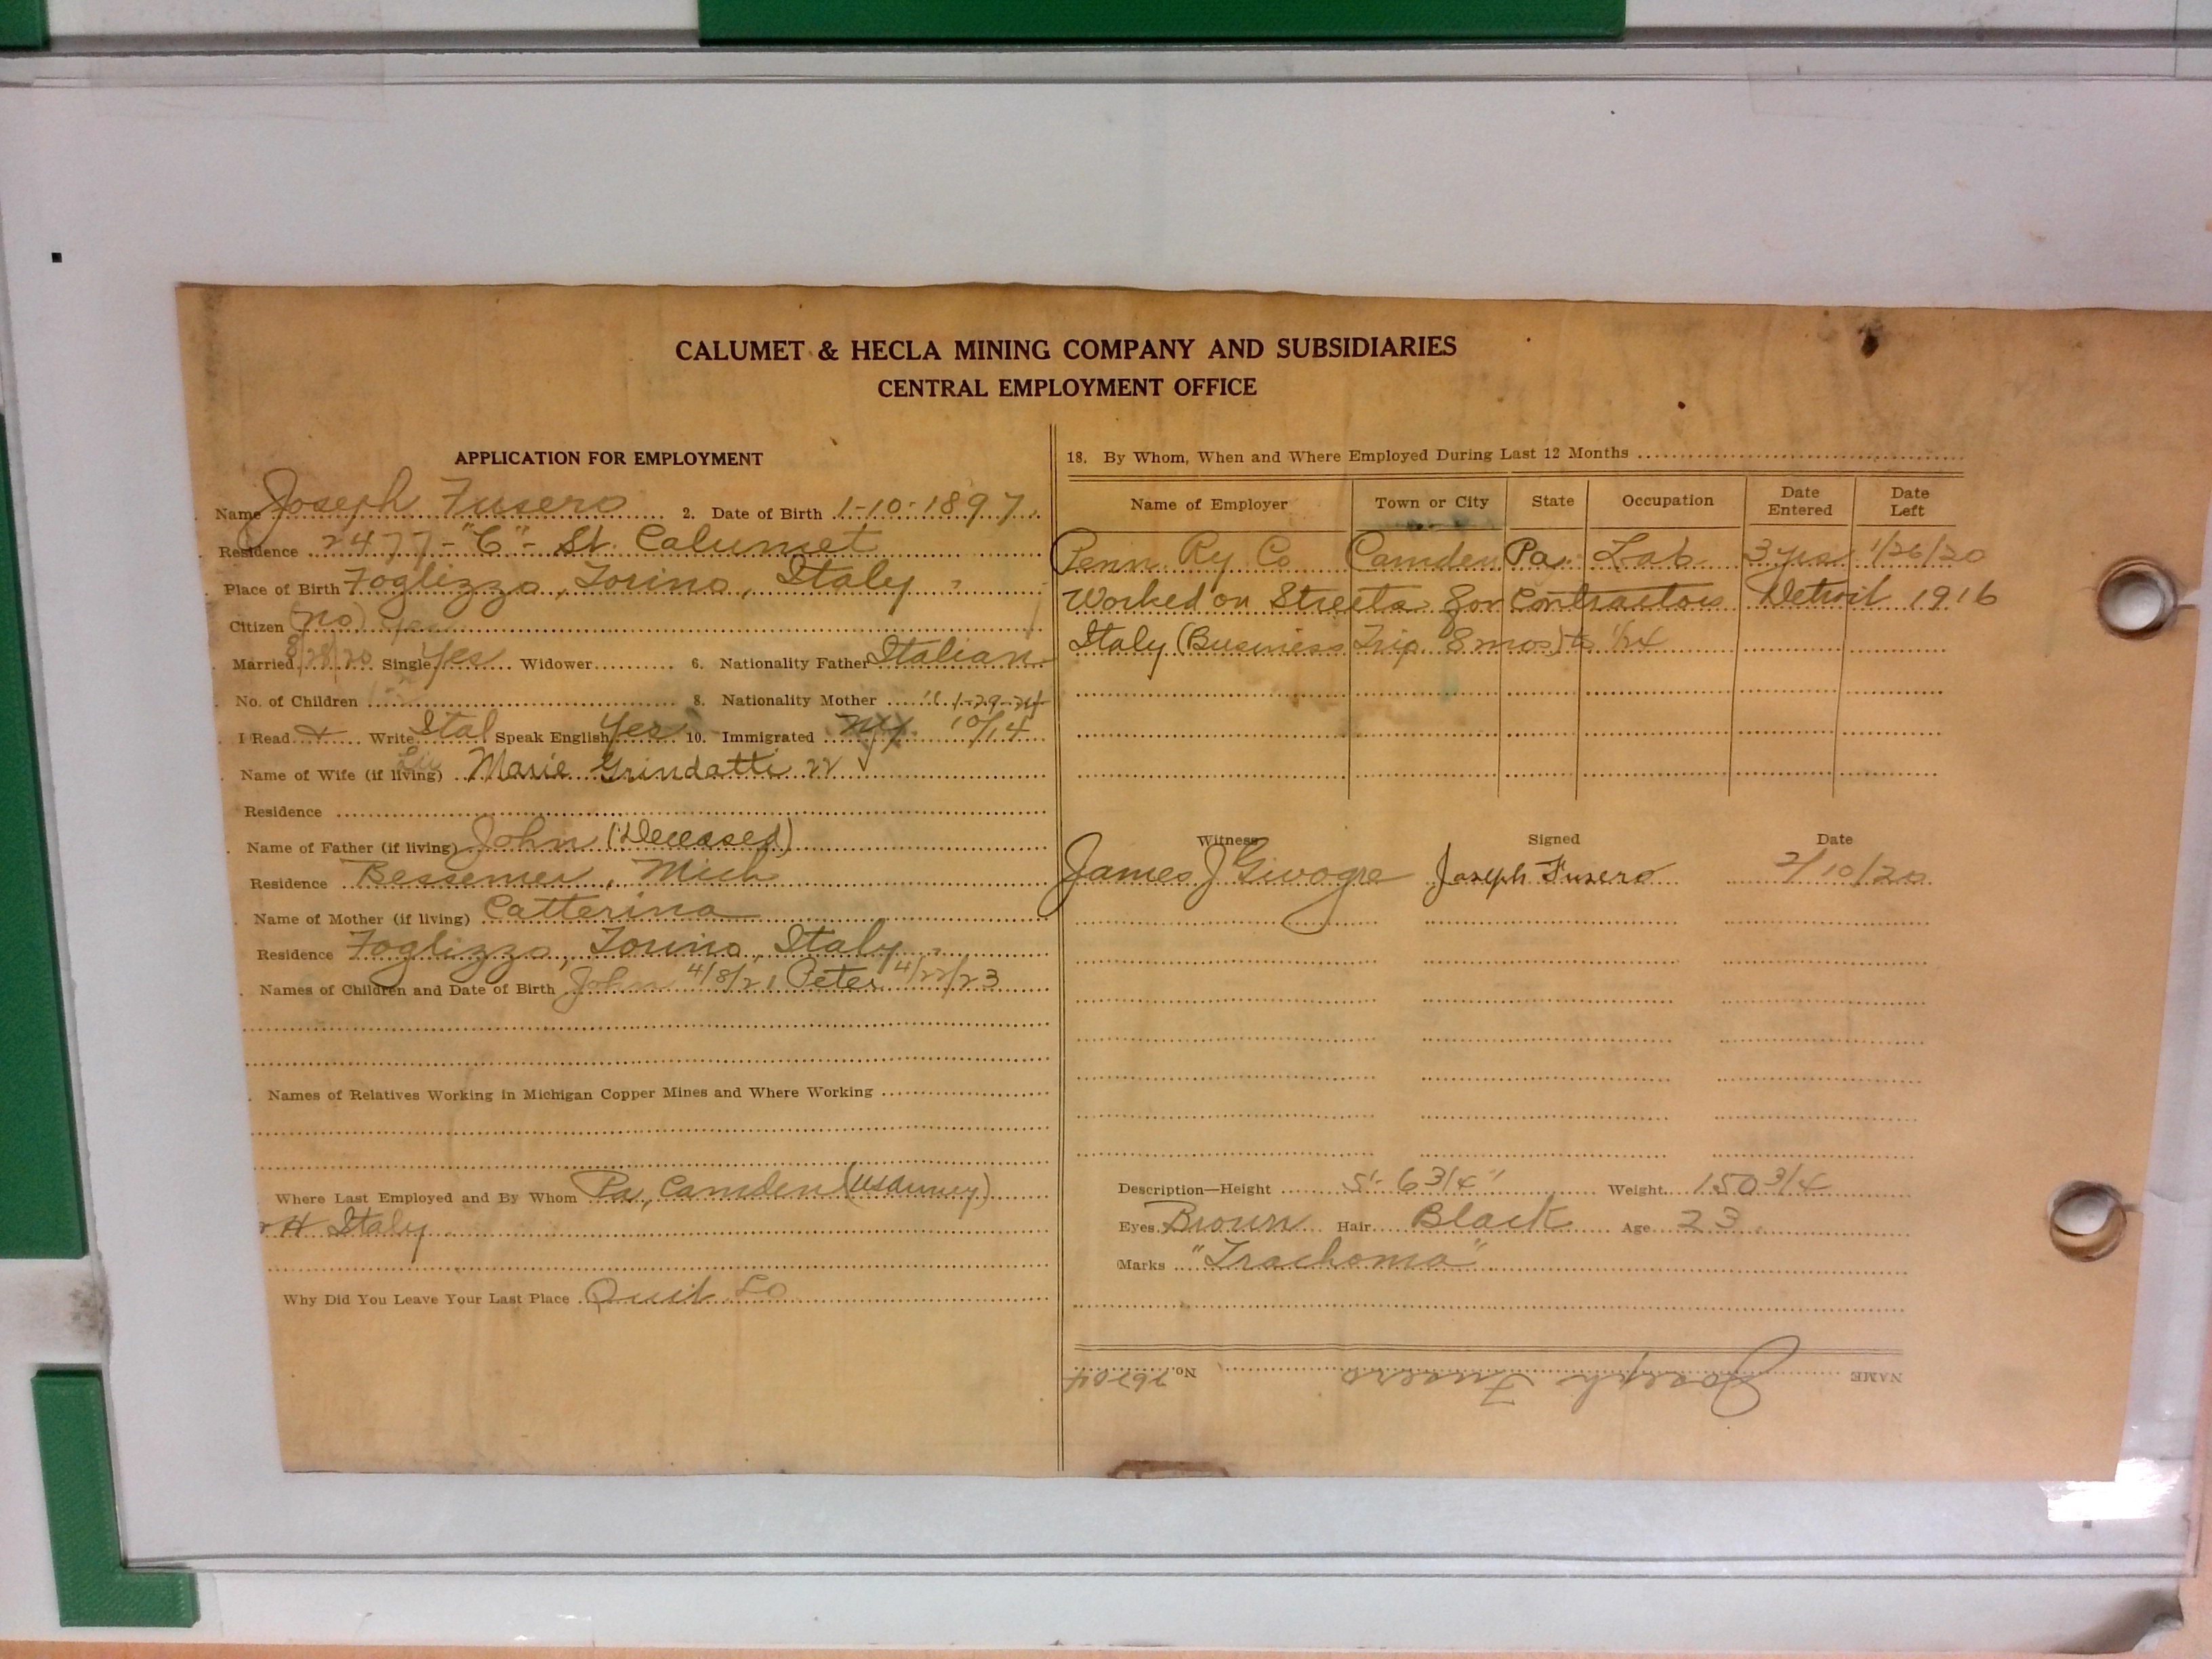 CALUMET & HECLA MINING COMPANY AND SUBSIDIARIES
CENTRAL EMPLOYMENT OFFICE
APPLICATION FOR EMPLOYMENT
Name Joseph Fusero 2. Date of Birth 1-10-1897
Residence 2477-"C"- St. Calumet
Place of Birth Foglizzo, Torino, Italy
Citizen (no) yes
Married 8/28/20 Single Yes Widower 6. Nationality Father Italian
No. of Children 8. Nationality Mother " 1-29-24
I Read Write Ital Speak English Yes 10. Immigrated NY 10/14
Name of Wife (if living) Marie Grindatti 22
Residence
Name of Father (if living) John (Deceased)
Residence Bessemer, Mich
Name of Mother (if living) Catterina
Residence Foglizzo, Torino, Italy
Names of Children and Date of Birth John 4/8/21 Peter 4/22/23
Names of Relatives Working in Michigan Copper Mines and Where Working
Where Last Employed and By Whom Pa, Camden
Italy
Why Did You Leave Your Last Place Quit
18. By Whom, When and Where Employed During Last 12 Months
Name of Employer Town or City State Occupation Date Entered Date Left
Penn Ry Co Camden Pa. Lab 3 yrs 1/26/20
Worked on Streets for Contractors Detroit 1916
Italy (Business Trip 8 mos) to 1/24
Witness Signed Date
James J Joseph Fusero 2/10/20
Description—Height 5' 6 3/4" Weight 150 3/4
Eyes Brown Hair Black Age 23
Marks "Trachoma"
NAME Joseph Fusero No.